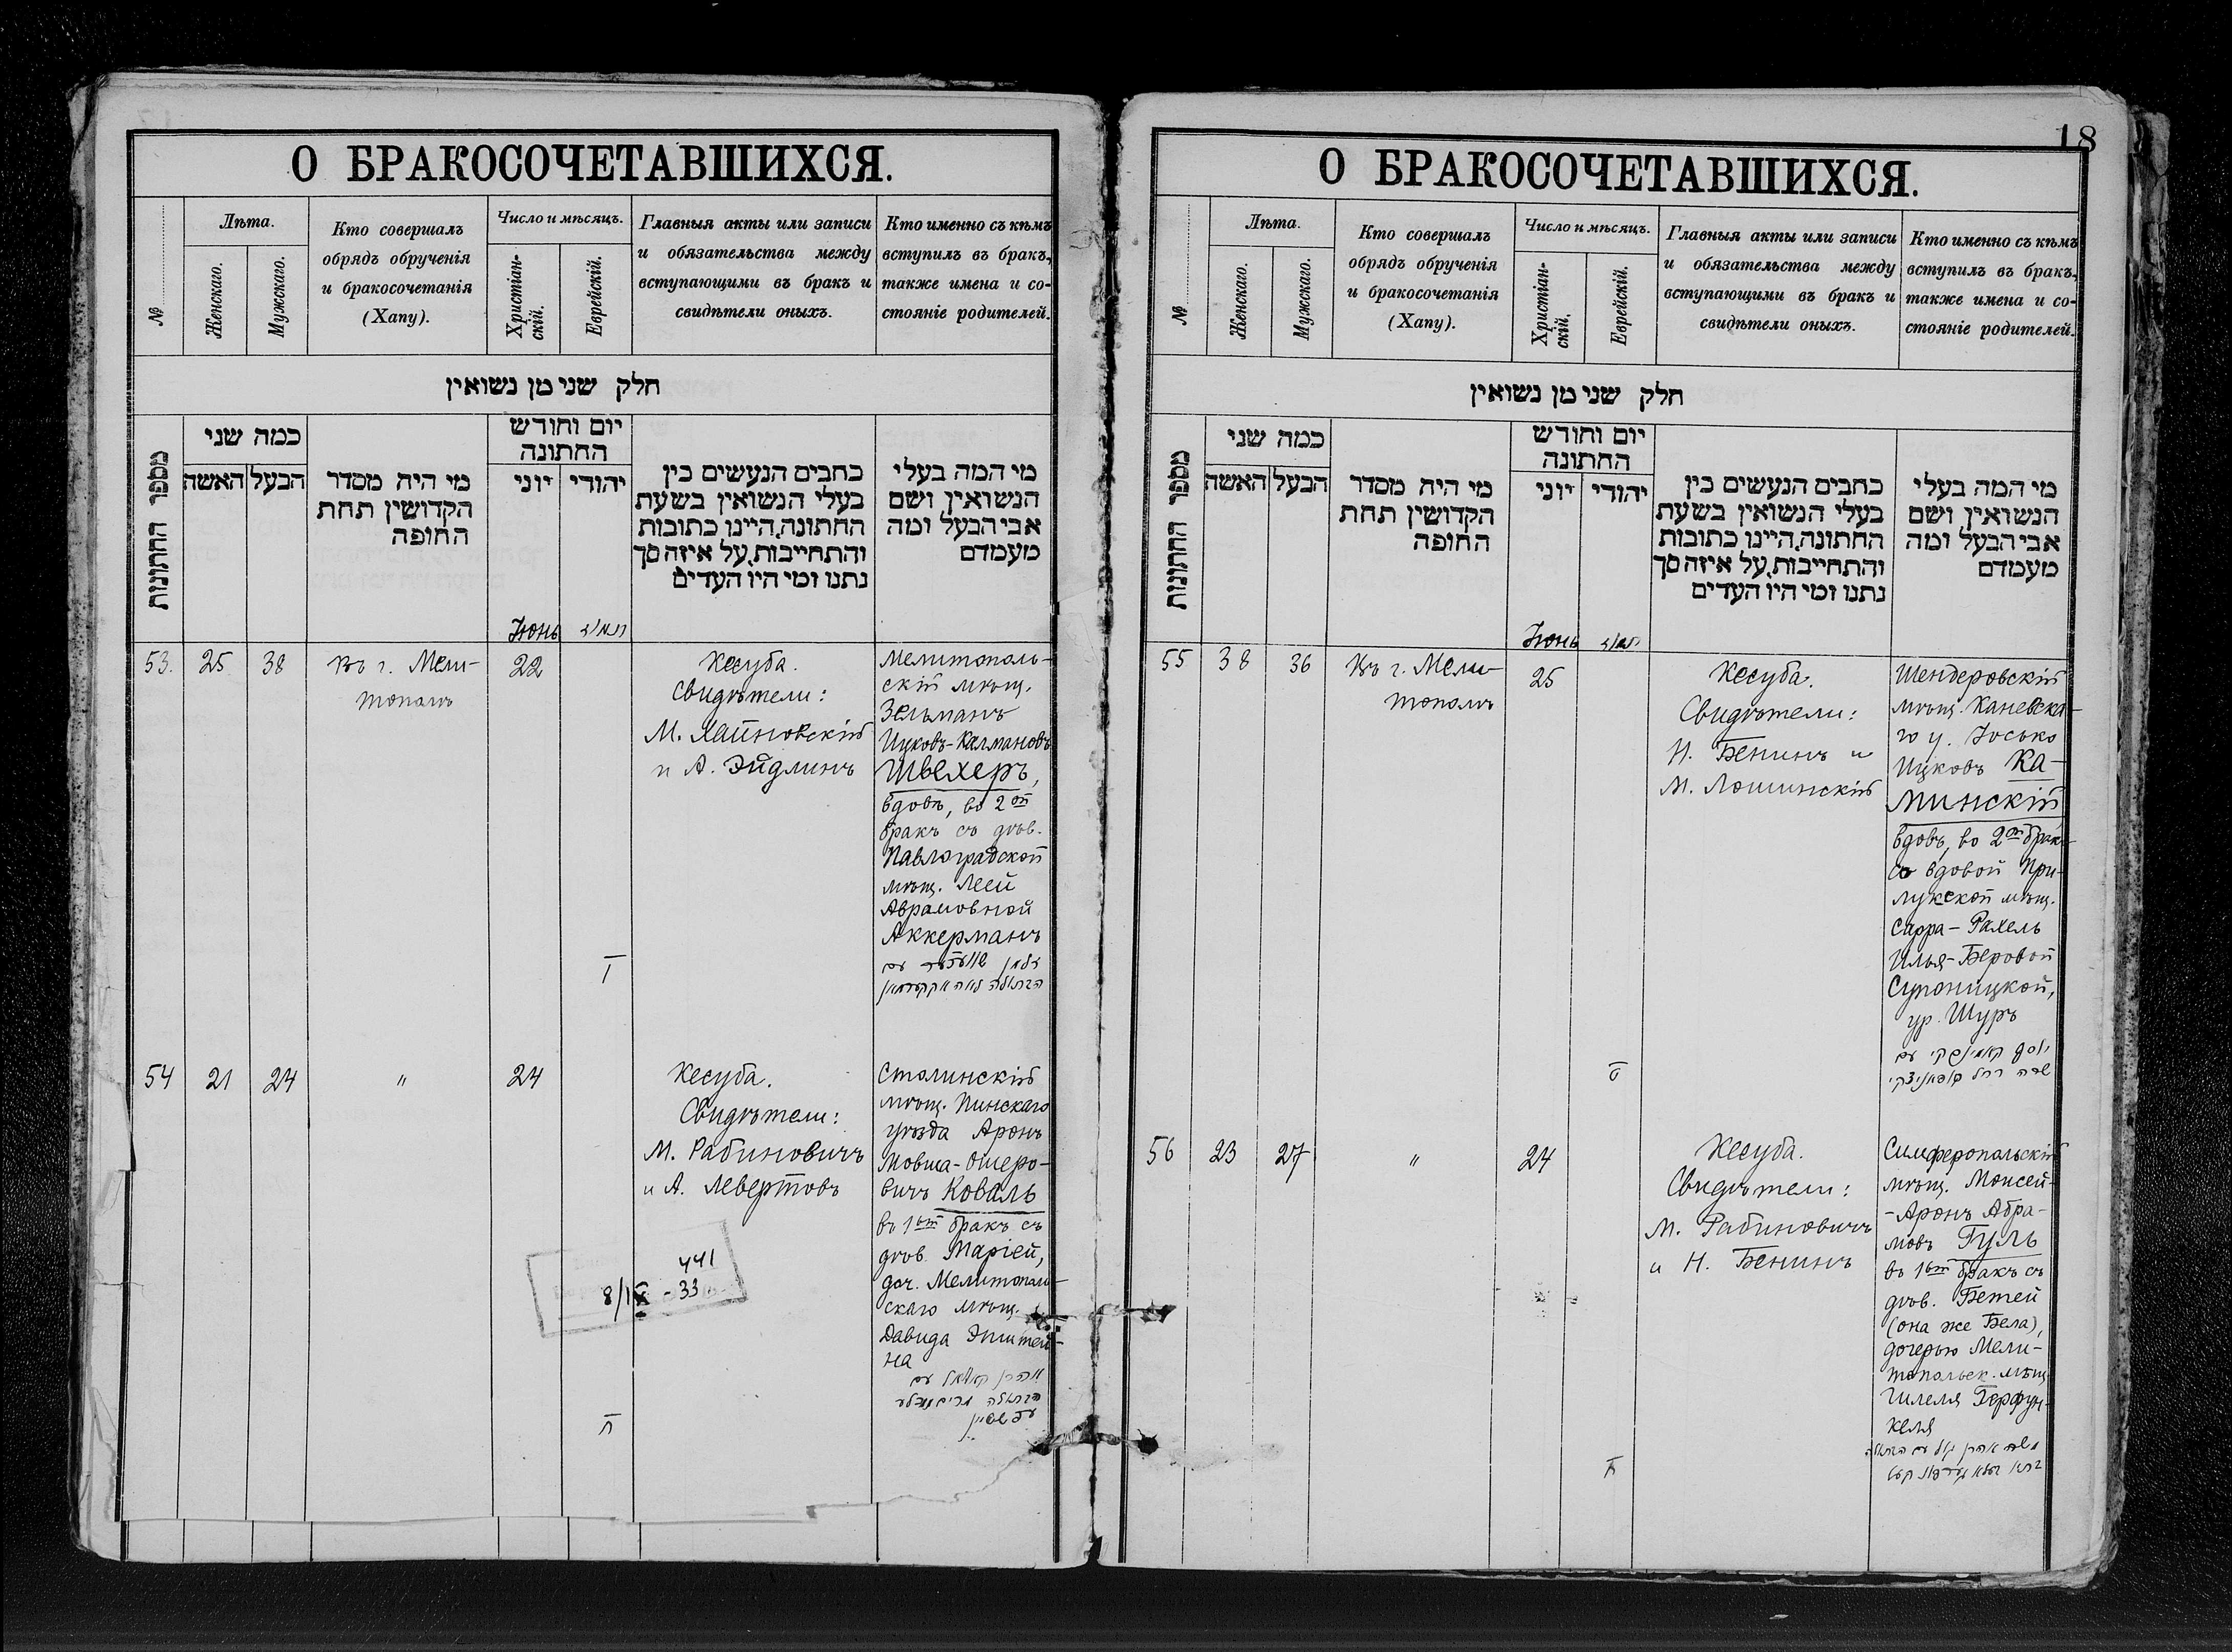 О БРАКОСОЧЕТАВШИХСЯ.
№
Лѣта.
Женскаго.
Мужскаго.
Кто совершалъ
обрядъ обрученія
и бракосочетанія
(Хапу).
Число и мѣсяцъ.
Христіан-
скій.
Еврейскій.
Главныя акты или записи
и обязательства между
вступающими въ бракъ и
свидѣтели оныхъ.
Кто именно съ кѣмъ
вступилъ въ бракъ,
также имена и со-
стояніе родителей.
חלק שני מן נשואין
מספר החתונות
כמה שני
האשה
הבעל
מי היה מסדר
הקדושין תחת
החופה
יום וחודש
החתונה
יוני
יהודי
כתבים הנעשים בין
בעלי הנשואין בשעת
החתונה, היינו כתובות
והתחייבות, על איזה סך
נתנו ומי היו העדים
מי המה בעלי
הנשואין ושם
אבי הבעל ומה
מעמדם
Іюнь
תמוז
53.
25
38
Въ г. Мели-
тополѣ
22
Кесуба.
Свидѣтели:
М. Хайновскій
и А. Эйдлинъ
Мелитополь-
скій мѣщ.
Зельманъ
Ицковъ-Калмановъ
Швехеръ,
вдовъ, во 2ой
бракъ съ дѣв.
Павлоградской
мѣщ. Леей
Аврамовной
Аккерманъ
זלמן שוועכער עם
הבתולה לאה אקקערמאן
ו
54
21
24
"
24
Кесуба.
Свидѣтели:
М. Рабиновичъ
и А. Левертовъ
441
8/IX - 33
Столинскій
мѣщ. Пинскаго
уѣзда Аронъ
Мовша-Ошеро-
вичъ Коваль
въ 1ый бракъ съ
дѣв. Маріей,
доч. Мелитополь-
скаго мѣщ.
Давида Эпштей-
на
אהרן קאוואל עם
הבתולה
עפשטיין
ח
18
О БРАКОСОЧЕТАВШИХСЯ.
№
Лѣта.
Женскаго.
Мужскаго.
Кто совершалъ
обрядъ обрученія
и бракосочетанія
(Хапу).
Число и мѣсяцъ.
Христіан-
скій.
Еврейскій.
Главныя акты или записи
и обязательства между
вступающими въ бракъ и
свидѣтели оныхъ.
Кто именно съ кѣмъ
вступилъ въ бракъ,
также имена и со-
стояніе родителей.
חלק שני מן נשואין
מספר החתונות
כמה שני
האשה
הבעל
מי היה מסדר
הקדושין תחת
החופה
יום וחודש
החתונה
יוני
יהודי
כתבים הנעשים בין
בעלי הנשואין בשעת
החתונה, היינו כתובות
והתחייבות, על איזה סך
נתנו ומי היו העדים
מי המה בעלי
הנשואין ושם
אבי הבעל ומה
מעמדם
Іюнь
תמוז
55
38
36
Въ г. Мели-
тополѣ
25
Кесуба.
Свидѣтели:
Н. Бенинъ и
М. Лошинскій
Шендеровскій
мѣщ. Каневска-
го у. Іосько
Ицковъ Ка-
минскій
вдовъ, во 2ой бракъ
со вдовой При-
лукской мѣщ.
Сарра-Рахель
Илья-Беровой
Супоницкой,
ур. Шуръ
יוסף קאמינסקי עם
שרה רחל סופאניצקי
ט
56
23
27
"
24
Кесуба.
Свидѣтели:
М. Рабиновичъ
и Н. Бенинъ
Симферопольскій
мѣщ. Моисей-
-Аронъ Абра-
мовъ Гуль
въ 1ый бракъ съ
дѣв. Бетей
(она же Бела),
дочерью Мели-
топольск. мѣщ.
Гилеля Герфун-
келя
משה אהרן גול עם הבתולה
ח